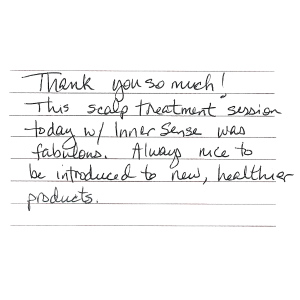 Thank you so much!
This scalp treatment session
today w/ Inner Sense was
fabulous. Always nice to
be introduced to new, healthier
products.